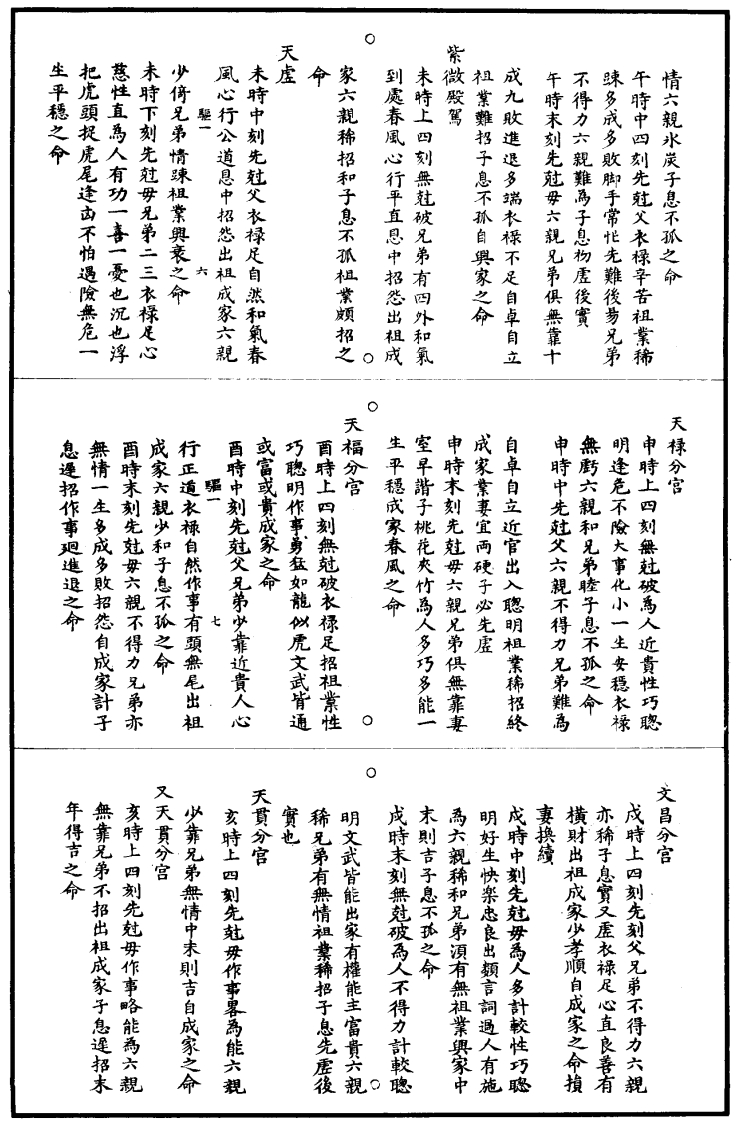 情六親氷炭子息不孤之命
午時中四刻先尅父衣祿辛苦祖業稀
踈多成多敗脚手常忙先難後昜兄弟
不得力六親難為子息抅虛後實
午時末刻先尅母六親兄弟俱無靠十
成九敗進退多端衣祿不足自卓自立
祖業難招子息不孤自興家之命
紫微殿駕
未時上四刻無尅破兄弟有四外和氣
到處春風心行平直恩中招怨出祖成
家六親稀招和子息不孤祖業頗招之
命
天虛
未時中刻先尅父衣祿足自然和氣春
風心行公道恩中招怨出祖成家六親
驅一 六
少倚兄弟情踈祖業興衰之命
未時下刻先尅母兄弟二三衣祿足心
慈性直為人有功一喜一憂也沉也浮
把虎頭捉虎尾逢凶不怕遇險無危一
生平穩之命
天祿分宫
申時上四刻無尅破為人近貴性巧聰
明逢危不險大事化小一生安穩衣祿
無虧六親和兄弟睦子息不孤之命
申時中先尅父六親不得力兄弟難為
自卓自立近官出入聰明祖業稀招終
成家業妻宜両硬子必先虛
申時末刻先尅母六親兄弟俱無靠妻
室早諧子桃花夾竹為人多巧多能一
生平穩成家春風之命
天福分宫
酉時上四刻無尅破衣祿足招祖業性
巧聰明作事勇猛如龍似虎文武皆通
或富或貴成家之命
酉時中刻先尅父兄弟少靠近貴人心
驅一 七
行正道衣祿自然作事有頭無尾出祖
成家六親少和子息不孤之命
酉時末刻先尅母六親不得力兄弟亦
無情一生多成多敗招怨自成家計子
息遲招作事廻進退之命
文昌分宫
戌時上四刻先刻父兄弟不得力六親
亦稀子息實又虛衣祿足心直良善有
橫財出祖成家少孝順自成家之命損
妻換續
戌時中刻先尅母為人多計較性巧聰
明好生快樂忠良出類言詞過人有施
為六親稀和兄弟湏有無祖業興家中
末則吉子息不孤之命
戌時末刻無尅破為人不得力計較聰
明文武皆能出家有權能主富貴六親
稀兄弟有無情祖業稀招子息先虛後
實也
天貫分宫
亥時上四刻先尅母作事畧為能六親
少靠兄弟無情中末則吉自成家之命
又天貫分宫
亥時上四刻先尅母作事略能為六親
無靠兄弟不招出祖成家子息遲招末
年得吉之命